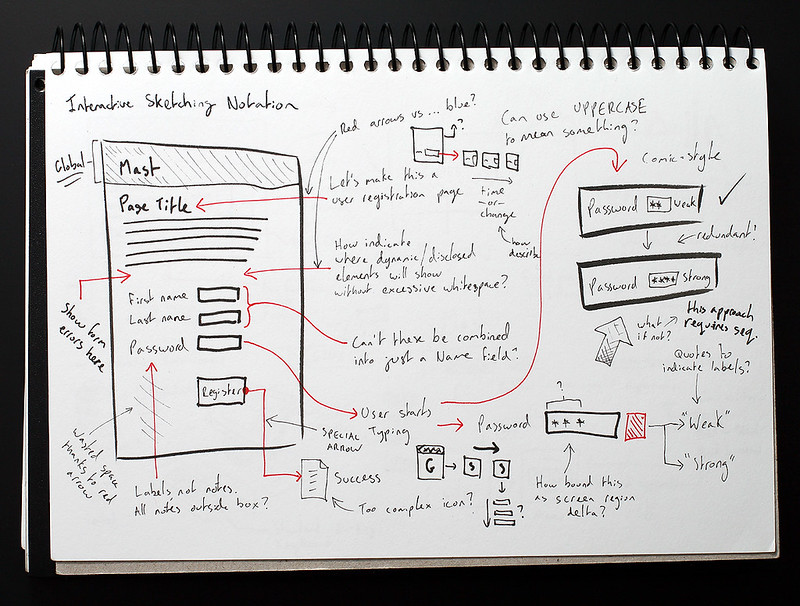 Interactive Sketching Notation
Global
Mast
Page Title
First name
Last name
Password
Register
Show form
errors here
Wasted space
thanks to red
arrow
Labels not notes.
All notes outside box?
Red arrows vs... blue?
?
Let's make this a
user registration page
time
-or-
change
how
describe
How indicate
where dynamic/disclosed
elements will show
without excessive whitespace?
Can't these be combined
into just a Name field?
User starts
Typing
SPECIAL
ARROW
Success
Too complex icon?
G
S
S
?
Can use UPPERCASE
to mean something?
Comic-style
Password ** weak
redundant?
Password **** Strong
what
if not?
this approach
requires seq.
Quotes to
indicate labels?
?
Password
* * *
"Weak"
"Strong"
How bound this
as screen region
delta?